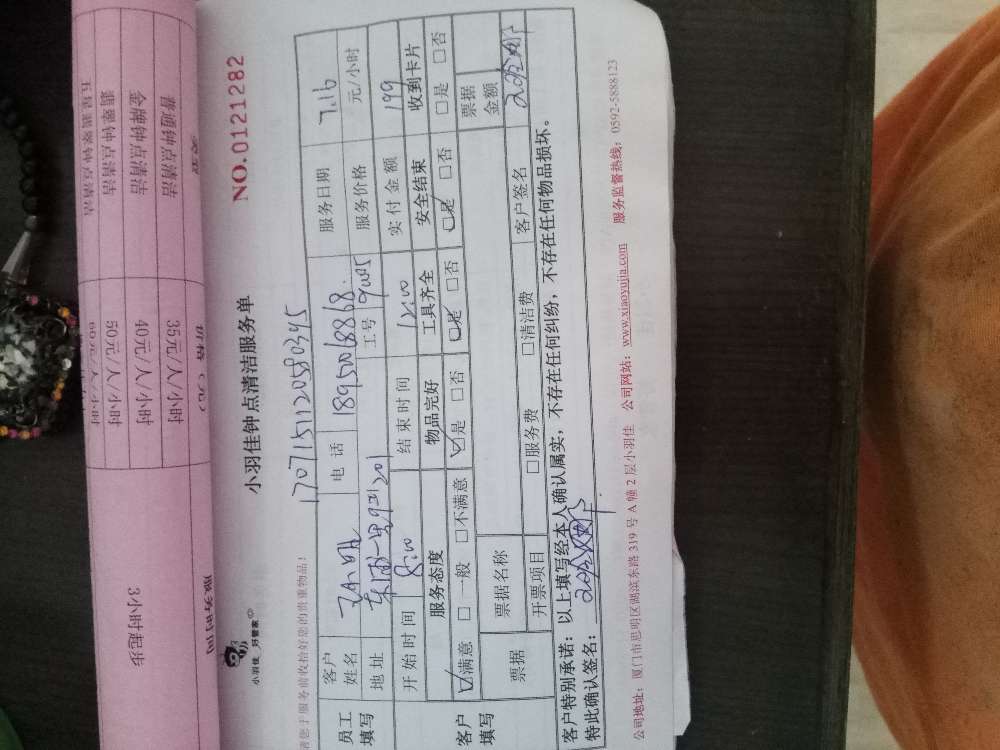 3小时起步
35元/人/小时
40元/人/小时
50元/人/小时
60元/人/小时
普通钟点清洁
金牌钟点清洁
翡翠钟点清洁
小羽佳 好管家
小羽佳钟点清洁服务单
NO.0121282
请您于服务前收拾好您的贵重物品!
1707151120580345
员工填写
客户姓名
电 话 18950068868
服务日期 7.16
地 址
工号 9005
服务价格 元/小时
开 始 时 间 8:00
结 束 时 间 12:00
实 付 金 额 199
客户填写
服务态度
物品完好
工具齐全
安全结束
收到卡片
☑满意 □一般 □不满意
☑是 □否
☑是 □否
☑是 □否
□是 □否
票据
票据名称
票据金额
开票项目
□服务费 □清洁费
客户签名
客户特别承诺:以上填写经本人确认属实,不存在任何纠纷,不存在任何物品损坏。
特此确认签名:
公司地址:厦门市思明区湖滨东路 319 号 A 幢 2 层小羽佳 公司网站:www.xiaoyujia.com 服务监督热线:0592-5888123